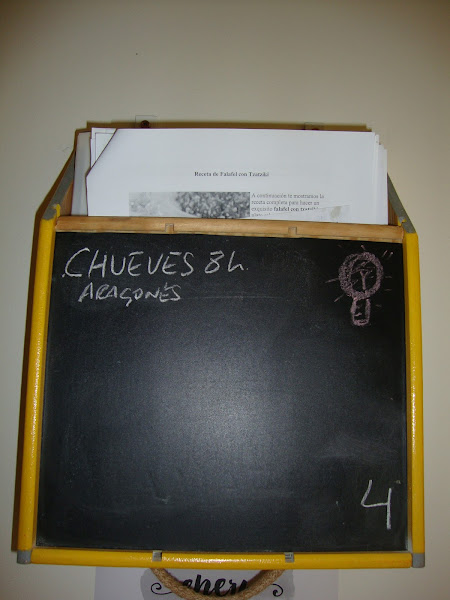 Receta de Falafel con Tzatziki
A continuación te mostramos la
receta completa para hacer un
exquisito falafel con tzatziki
CHUEVES 8h.
ARAGONÉS
4